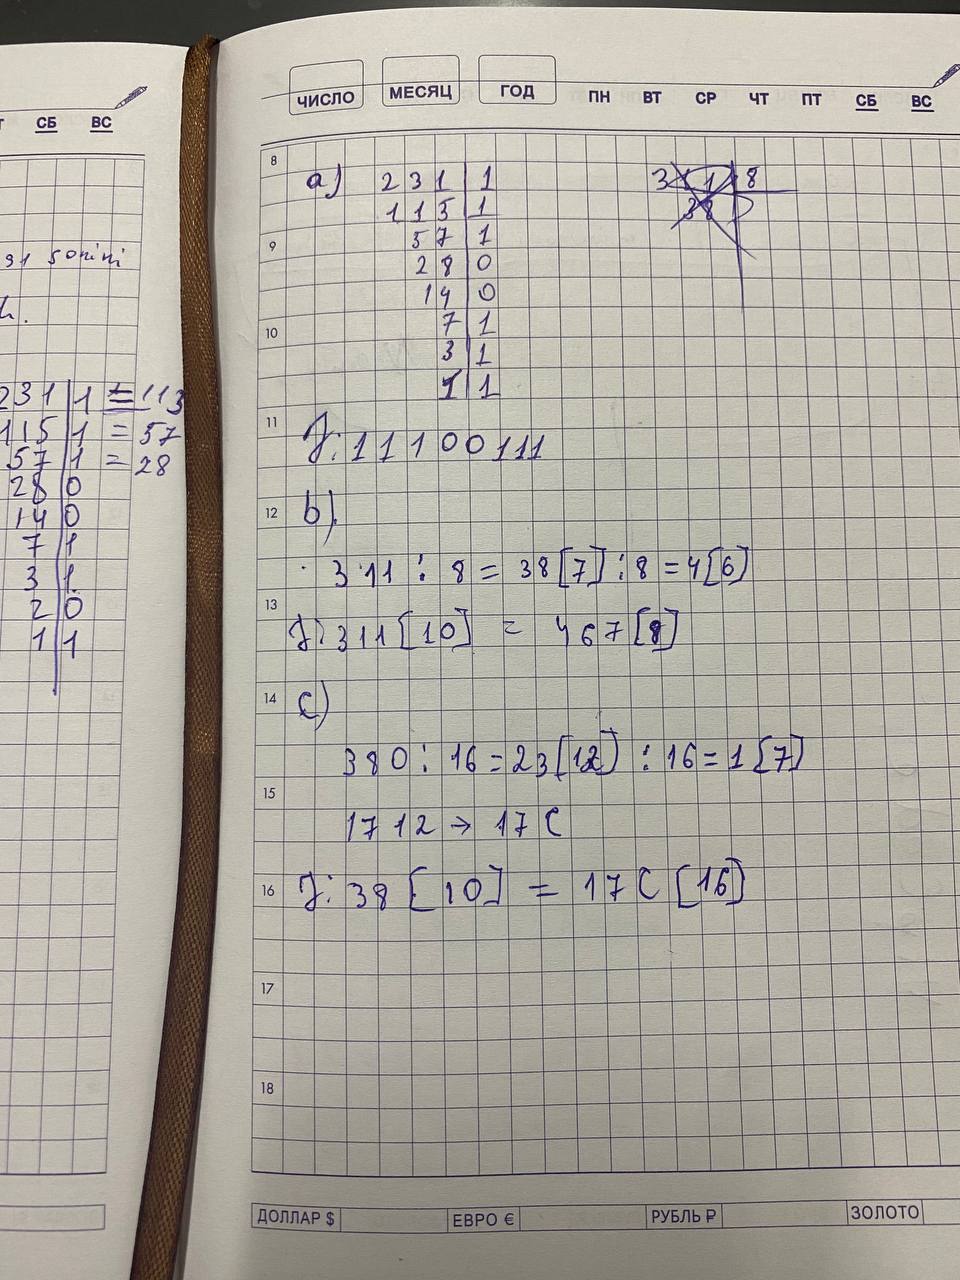 СБ ВС
91 sonini
231 1 = 113
115 1 = 57
57 1 = 28
28 0
14 0
7 1
3 1
2 0
1 1
ЧИСЛО МЕСЯЦ ГОД ПН ВТ СР ЧТ ПТ СБ ВС
8
a) 231 1
115 1
9
57 1
28 0
14 0
10
7 1
3 1
1 1
11
J: 11100111
12
b)
311 : 8 = 38[7] : 8 = 4[6]
13
J: 311[10] = 467[8]
14
c)
380 : 16 = 23[12] : 16 = 1[7]
15
1712 → 17C
16
J: 38[10] = 17C[16]
17
18
ДОЛЛАР $ ЕВРО € РУБЛЬ ₽ ЗОЛОТО